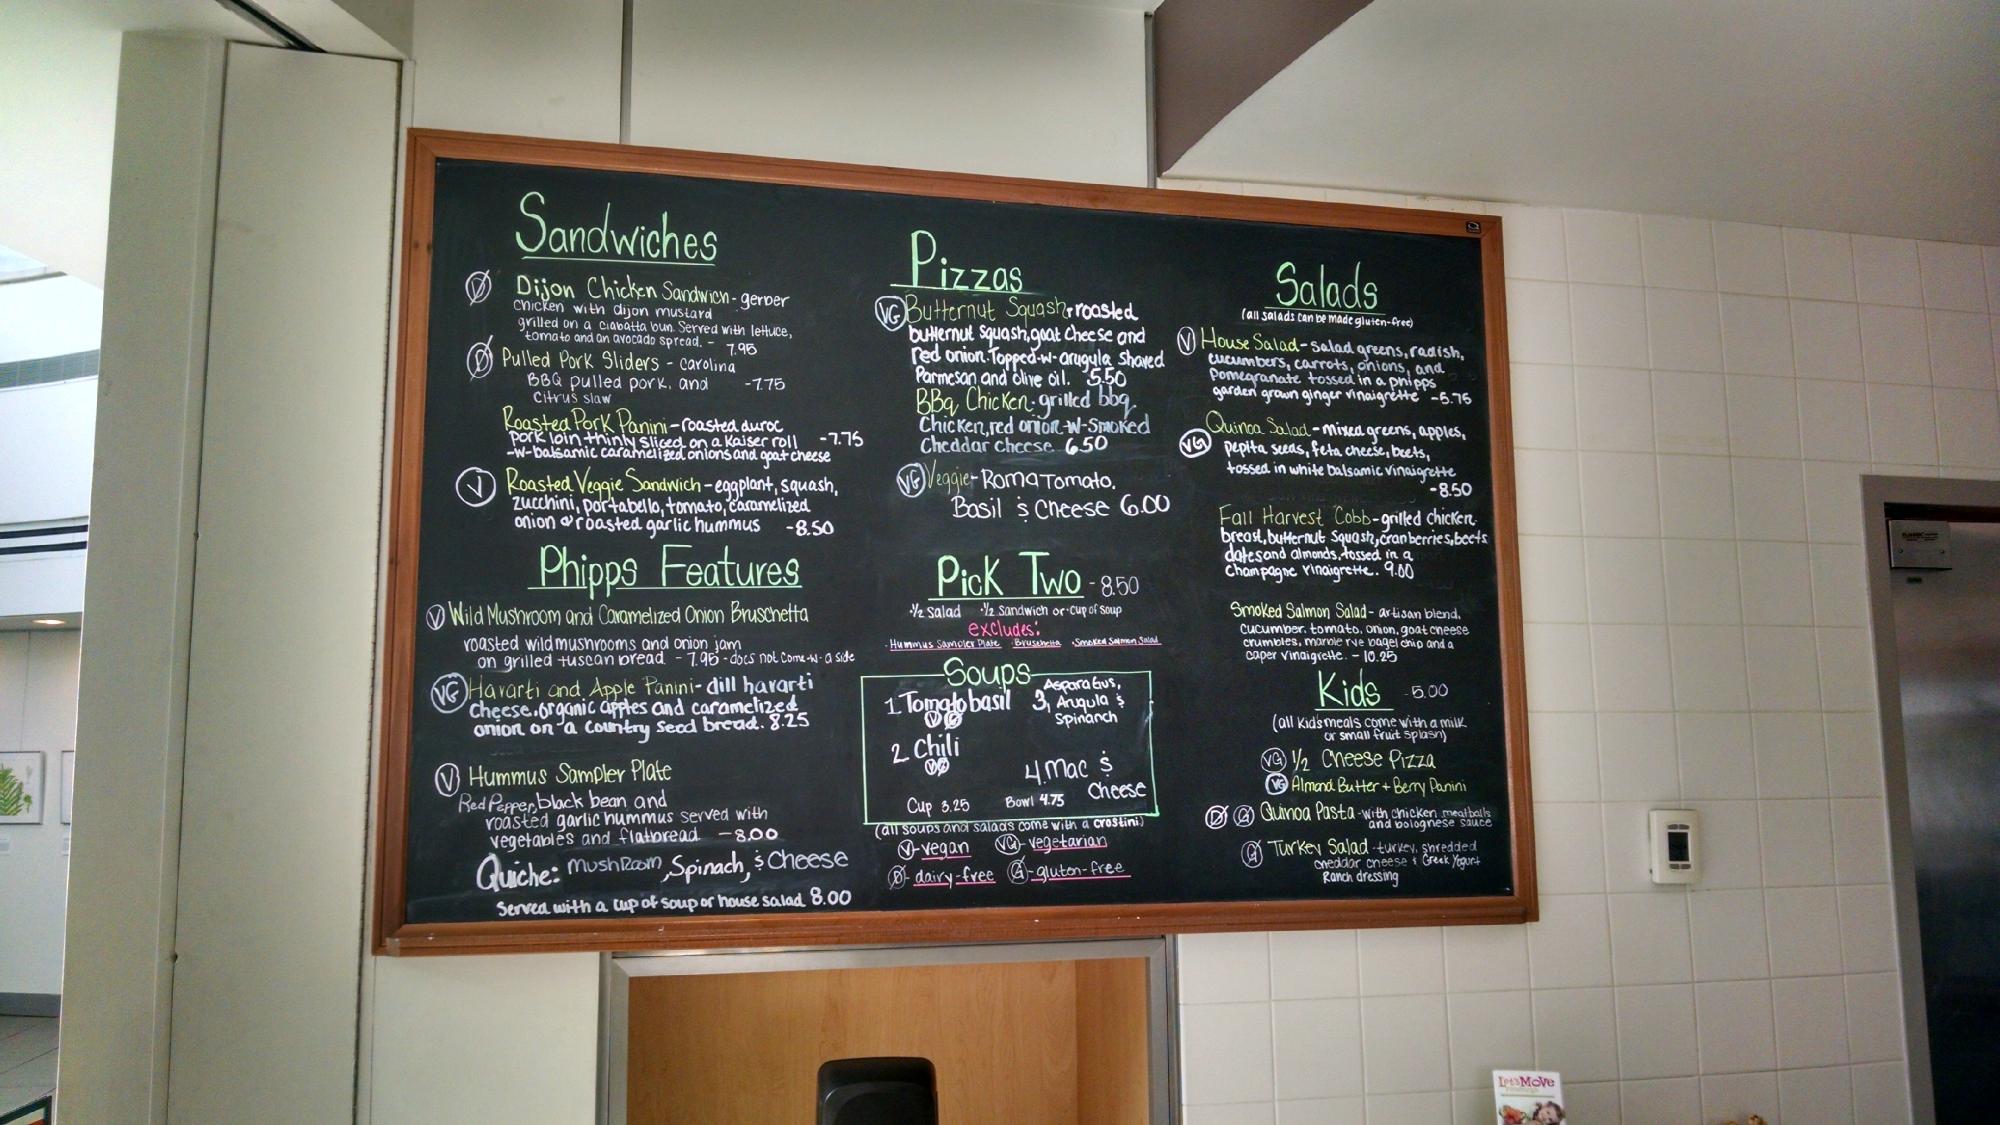 Sandwiches
Dijon Chicken Sandwich - gerber
chicken with dijon mustard
grilled on a ciabatta bun. Served with lettuce,
tomato and an avocado spread. - 7.95
Pulled Pork Sliders - carolina
BBQ pulled pork, and - 7.75
citrus slaw
Roasted Pork Panini - roasted duroc
pork loin thinly sliced on a kaiser roll - 7.75
-w- balsamic caramelized onions and goat cheese
V Roasted Veggie Sandwich - eggplant, squash,
zucchini, portabello, tomato, caramelized
onion & roasted garlic hummus - 8.50
Phipps Features
V Wild Mushroom and Caramelized Onion Bruschetta
roasted wild mushrooms and onion jam
on grilled tuscan bread - 7.95 - does not come -w- a side
VG Havarti and Apple Panini - dill havarti
cheese, organic apples and caramelized
onion on a country seed bread. 8.25
V Hummus Sampler Plate
Red Pepper, black bean and
roasted garlic hummus served with
vegetables and flatbread - 8.00
Quiche: Mushroom, Spinach, & Cheese
Served with a cup of soup or house salad 8.00
Pizzas
VG Butternut Squash - roasted
butternut squash, goat cheese and
red onion. Topped -w- arugula shaved
Parmesan and olive oil. 5.50
BBq Chicken - grilled bbq
Chicken, red onion -w- smoked
Cheddar cheese 6.50
VG Veggie - Roma Tomato,
Basil & Cheese 6.00
Pick Two - 8.50
· 1/2 salad · 1/2 Sandwich or · cup of soup
excludes:
· Hummus Sampler Plate · Bruschetta · Smoked Salmon Salad
Soups
1. Tomato basil
V G
2. Chili
V G
3. Asparagus,
Arugula &
Spinanch
4. Mac &
Cheese
Cup 3.25 Bowl 4.75
(all soups and salads come with a crostini)
V - vegan VG - vegetarian
D - dairy-free G - gluten-free
Salads
(all salads can be made gluten-free)
V House Salad - salad greens, radish,
cucumbers, carrots, onions, and
Pomegranate tossed in a phipps
garden grown ginger vinaigrette - 5.75
VG Quinoa Salad - mixed greens, apples,
pepita seeds, feta cheese, beets,
tossed in white balsamic vinaigrette
- 8.50
Fall Harvest Cobb - grilled chicken
breast, butternut squash, cranberries, beets
dates and almonds, tossed in a
champagne vinaigrette. 9.00
Smoked Salmon Salad - artisan blend,
cucumber, tomato, onion, goat cheese
crumbles, marble rye bagel chip and a
caper vinaigrette. - 10.25
Kids - 5.00
(all Kids meals come with a milk
or small fruit splash)
VG 1/2 Cheese Pizza
VG Almond Butter + Berry Panini
D G Quinoa Pasta - with chicken meatballs
and bolognese sauce
G Turkey Salad - turkey, shredded
cheddar cheese & Greek Yogurt
Ranch dressing
Let's Move